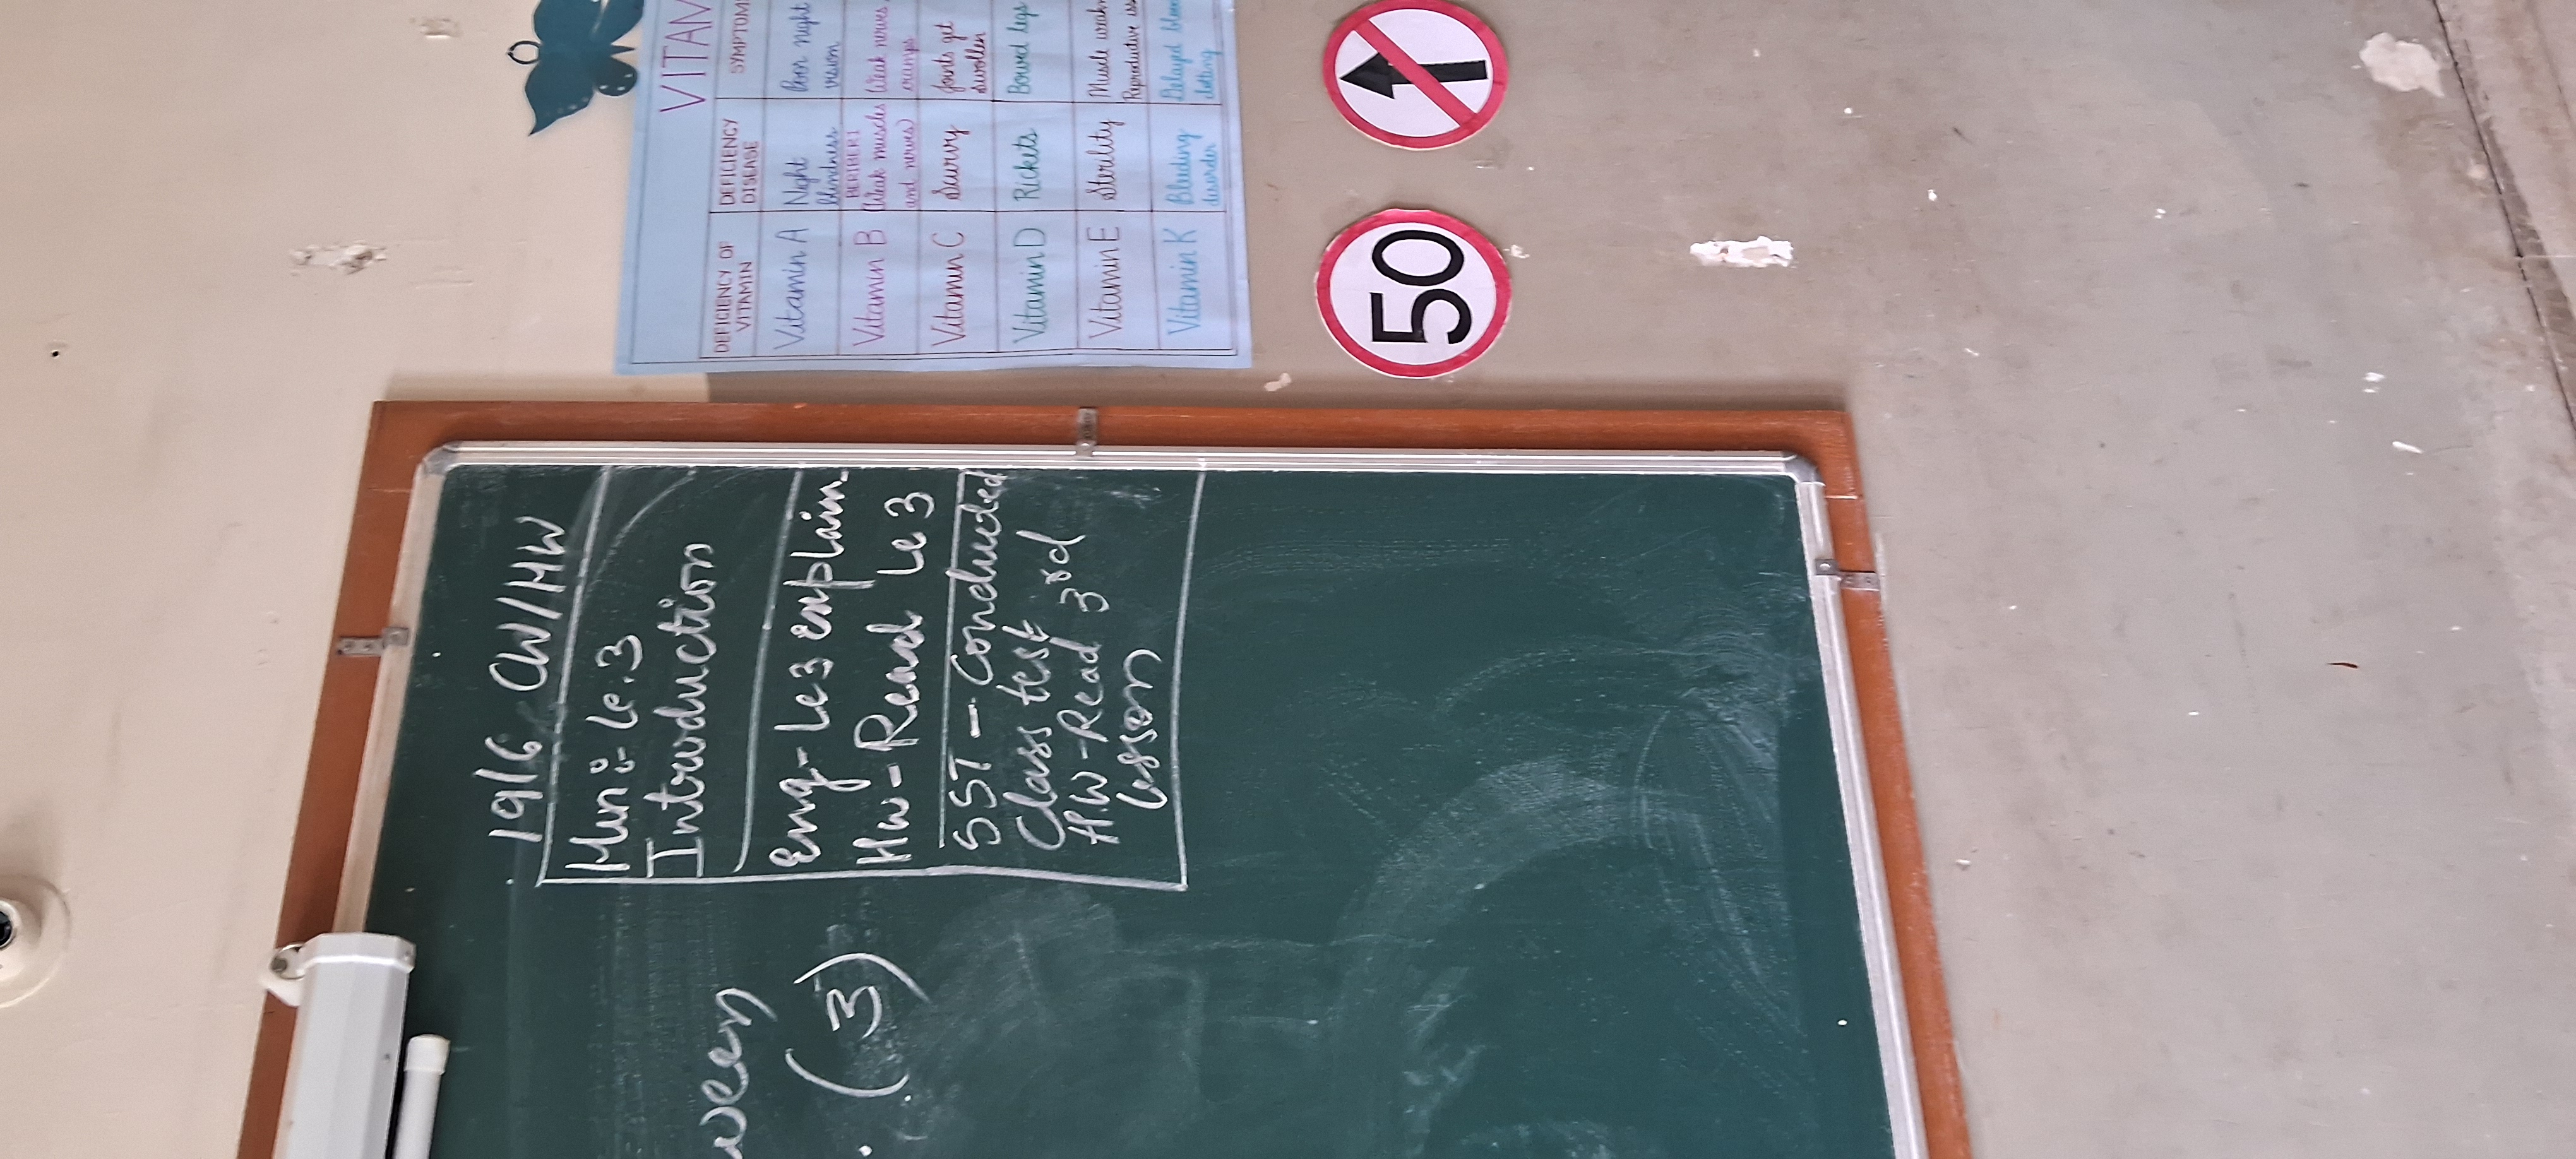 19/6 CW/HW
Mun :- Le.3
Introduction
Eng- Le3 explain
Hw- Read Le 3
SST - Conducted
Class test
H.W - Read 3rd
lesson
ween
. (3)
VITAM
DEFICIENCY OF VITAMIN DEFICIENCY DISEASE SYMPTOM
Vitamin A Night blindness Poor night vision
Vitamin B BERIBERI (Weak muscles and nerves) Weak nerves, cramps
Vitamin C Scurvy Joints get swollen
Vitamin D Rickets Bowed legs
Vitamin E Sterility Muscle weak Reproductive iss
Vitamin K Bleeding disorder Delayed bloo clotting
50